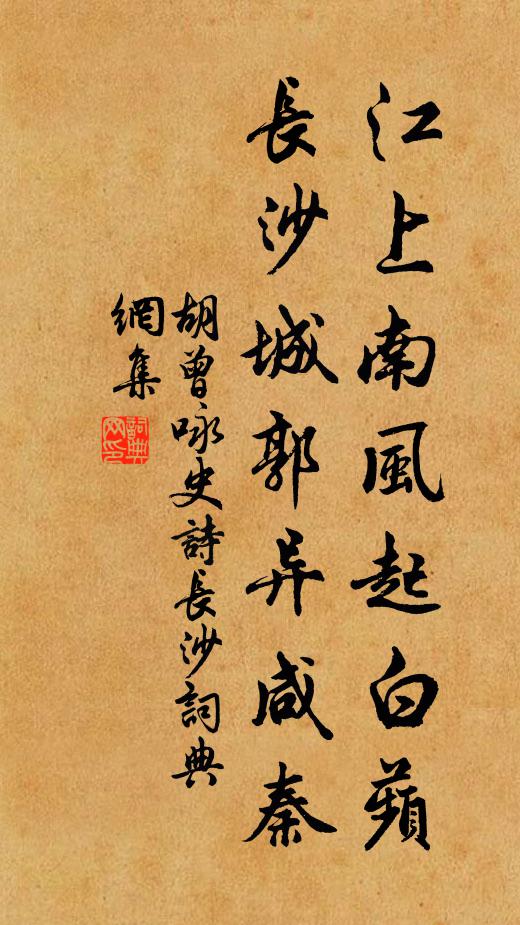 江上南風起白蘋
長沙城郭异咸秦
胡曾咏史詩長沙詞典
網集
詞典
网印